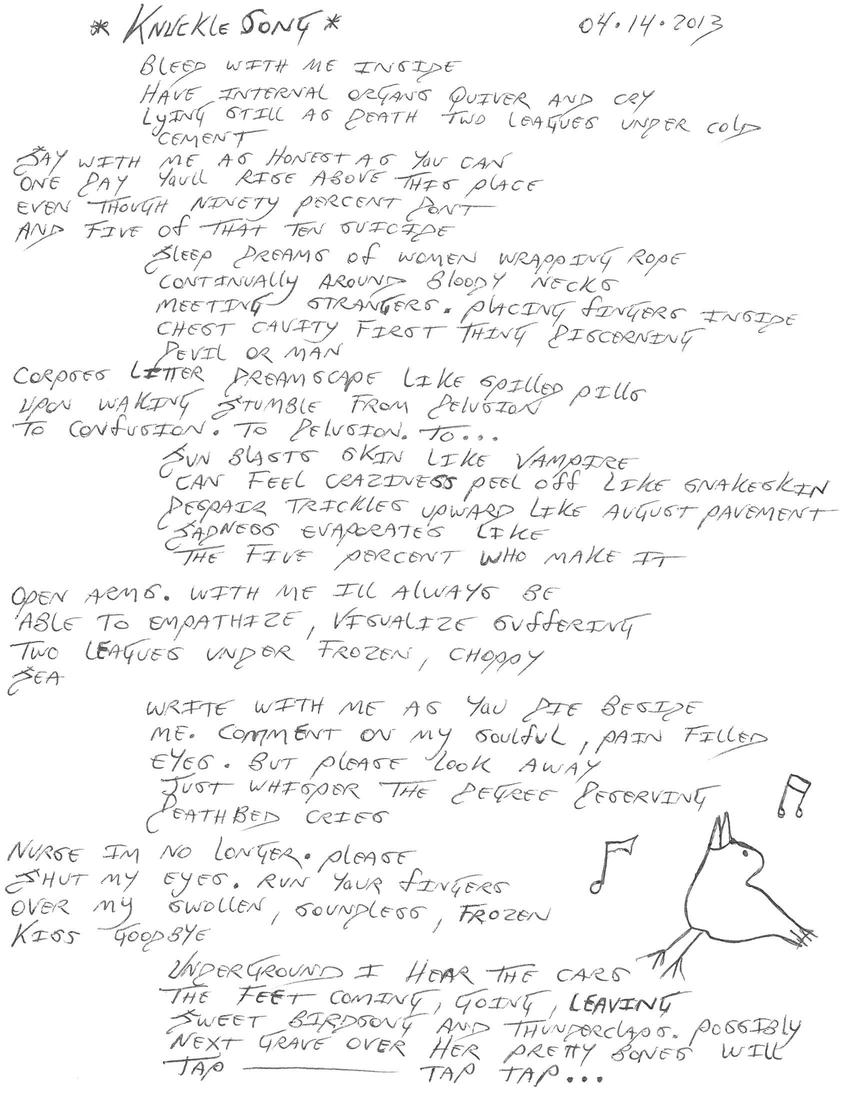 * KNUCKLE SONG * 04.14.2013
BLEED WITH ME INSIDE
HAVE INTERNAL ORGANS QUIVER AND CRY
LYING STILL AS DEATH TWO LEAGUES UNDER COLD
CEMENT
SAY WITH ME AS HONEST AS YOU CAN
ONE DAY YOULL RISE ABOVE THIS PLACE
EVEN THOUGH NINETY PERCENT DONT
AND FIVE OF THAT TEN SUICIDE
SLEEP DREAMS OF WOMEN WRAPPING ROPE
CONTINUALLY AROUND BLOODY NECKS
MEETING STRANGERS. PLACING FINGERS INSIDE
CHEST CAVITY FIRST THING DISCERNING
DEVIL OR MAN
CORPSES LITTER DREAMSCAPE LIKE SPILLED PILLS
UPON WAKING STUMBLE FROM DELUSION
TO CONFUSION. TO DELUSION. TO...
SUN BLASTS SKIN LIKE VAMPIRE
CAN FEEL CRAZINESS PEEL OFF LIKE SNAKESKIN
DESPAIR TRICKLES UPWARD LIKE AUGUST PAVEMENT
SADNESS EVAPORATES LIKE
THE FIVE PERCENT WHO MAKE IT
OPEN ARMS. WITH ME ILL ALWAYS BE
ABLE TO EMPATHIZE, VISUALIZE SUFFERING
TWO LEAGUES UNDER FROZEN, CHOPPY
SEA
WRITE WITH ME AS YOU DIE BESIDE
ME. COMMENT ON MY SOULFUL, PAIN FILLED
EYES. BUT PLEASE LOOK AWAY
JUST WHISPER THE DEGREE DESERVING
DEATHBED CRIES
NURSE IM NO LONGER. PLEASE
SHUT MY EYES. RUN YOUR FINGERS
OVER MY SWOLLEN, SOUNDLESS, FROZEN
KISS GOODBYE
UNDERGROUND I HEAR THE CARS
THE FEET COMING, GOING, LEAVING
SWEET BIRDSONG AND THUNDERCLAPS. POSSIBLY
NEXT GRAVE OVER HER PRETTY BONES WILL
TAP ———— TAP TAP...